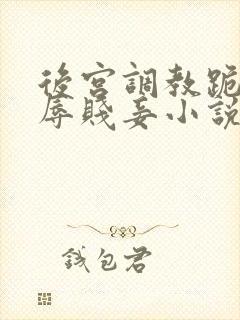 後宮調教跪
辱賤妾小說
錢包君